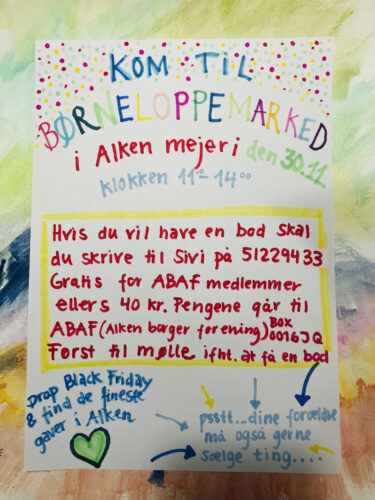 KOM TIL
BØRNELOPPEMARKED
i Alken mejeri den 30.11
klokken 11⁰⁰-14⁰⁰
Hvis du vil have en bod skal
du skrive til Sivi på 51229433
Gratis for ABAF medlemmer
ellers 40 kr. Pengene går til
ABAF (Alken borger forening) BOX
0016JQ
Først til mølle ifht. at få en bod
Drop Black Friday
& find de fineste
gaver i Alken
psstt...dine forældre
må også gerne
sælge ting....